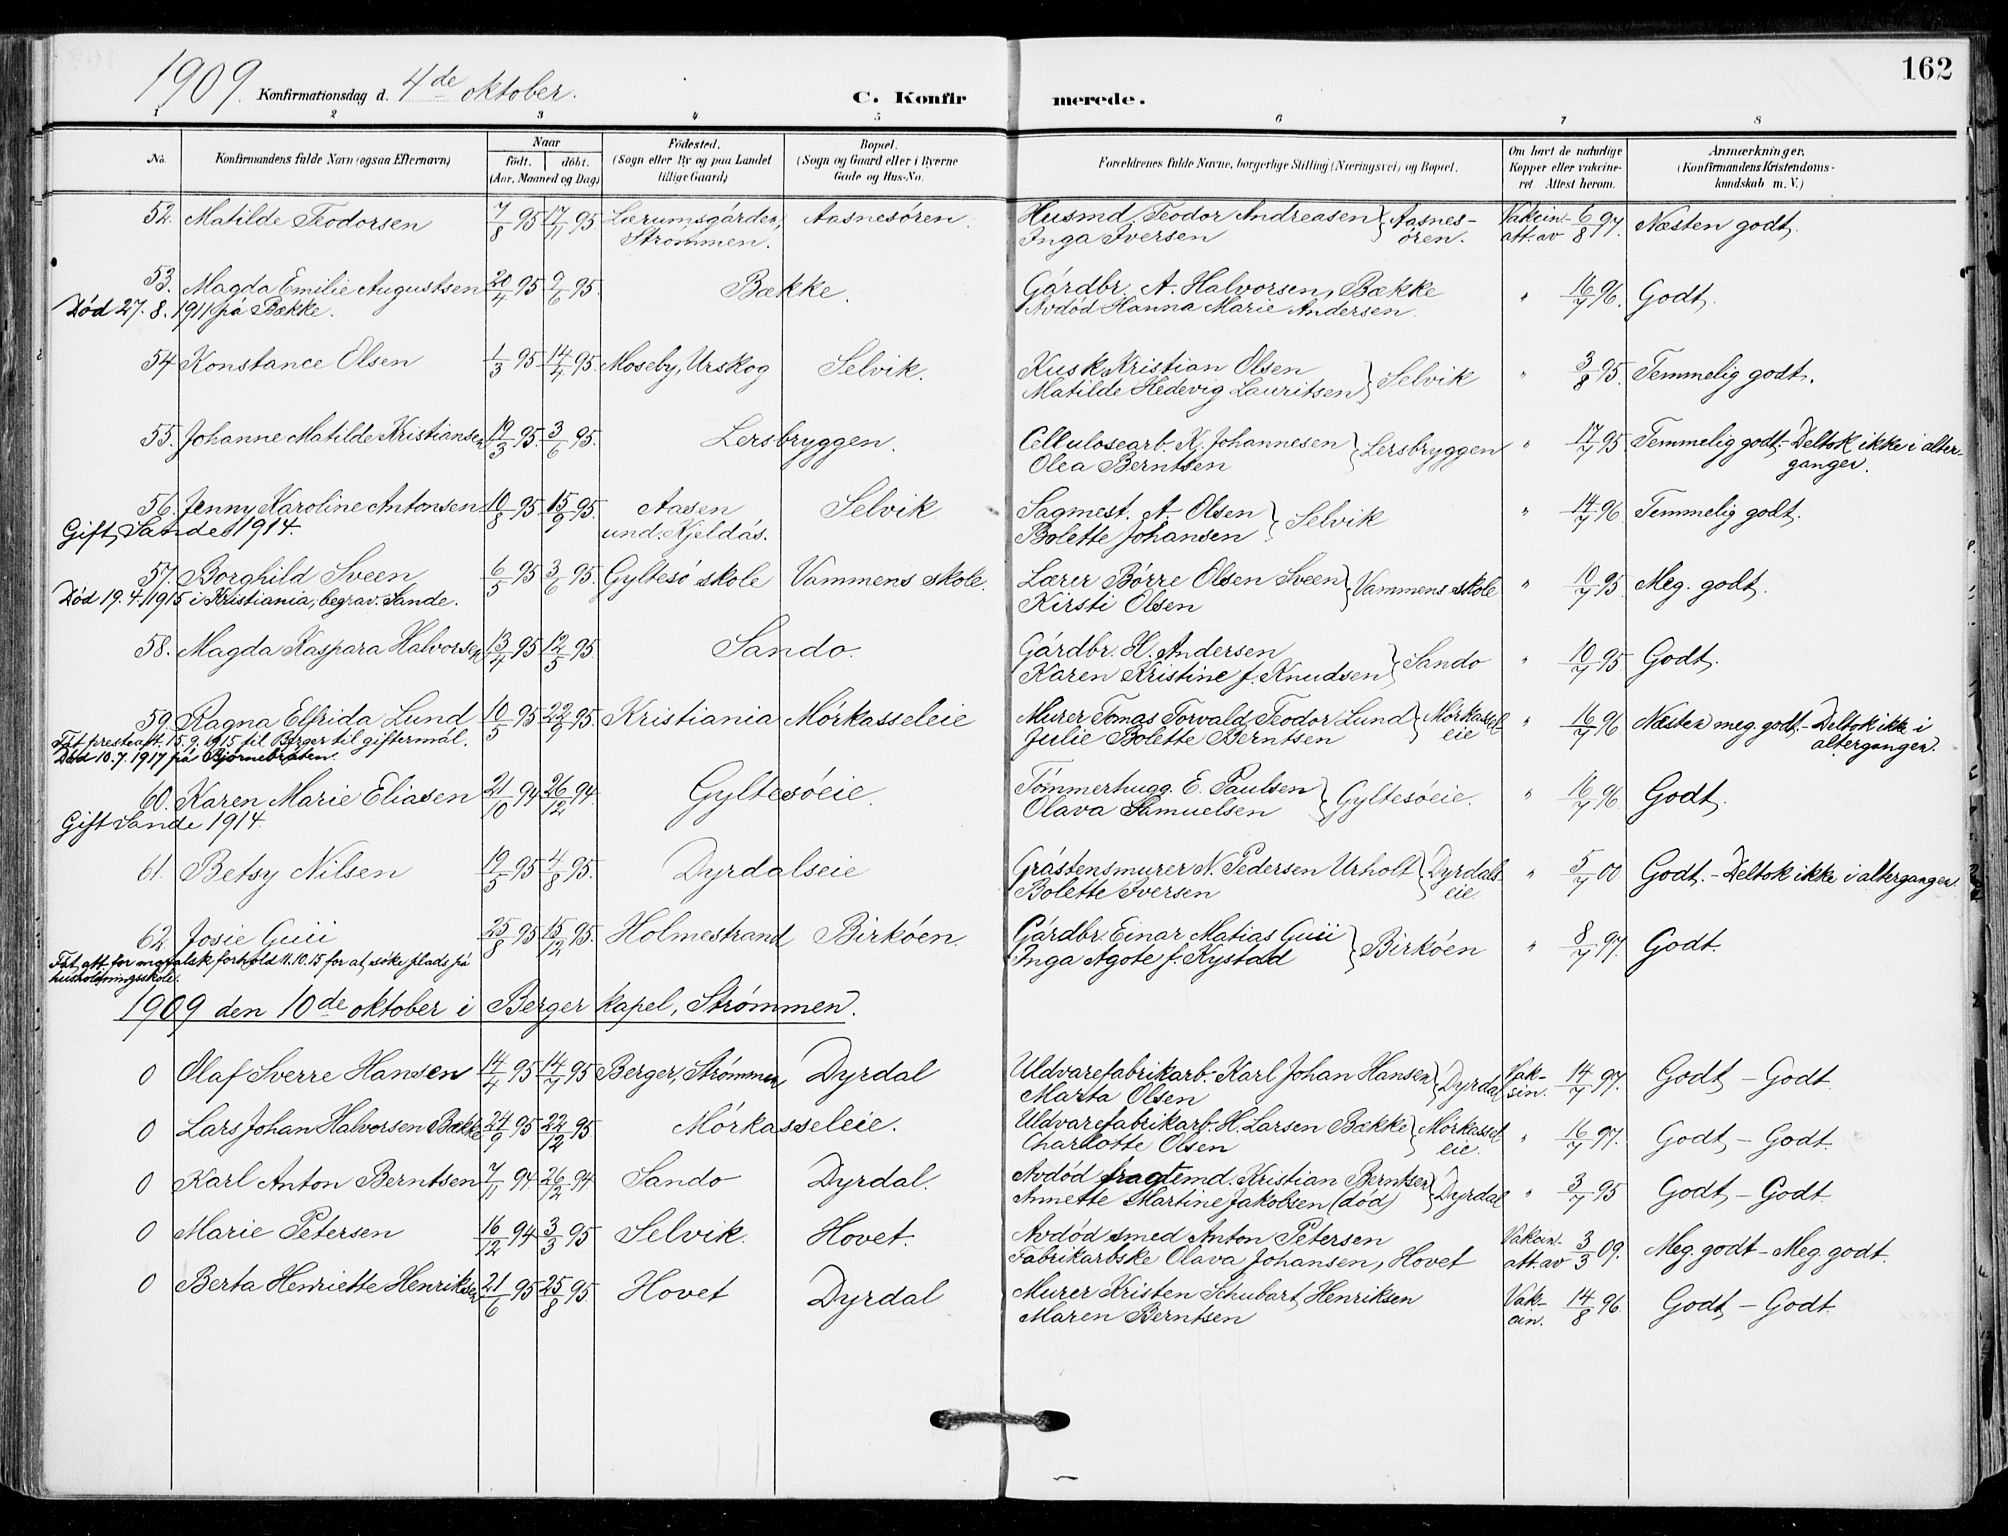 162
1909. Konfirmationsdag d. 4de oktober. C. Konfirmerede.
1 2 3 4 5 6 7 8
No. Konfirmandens fulde Navn (ogsaa Efternavn) Naar født. døbt. (Aar, Maaned og Dag) Fødested. (Sogn eller By og paa Landet tillige Gaard) Bopæl. (Sogn og Gaard eller i Byerne Gade og Hus-No. Forældrenes fulde Navne, borgerlige Stilling (Næringsvei) og Bopæl. Om havt de naturlige Kopper eller vakcineret Attest herom. Anmærkninger. (Konfirmandens Kristendomskundskab m. V.)
52. Matilde Teodorsen 7/8 95 17/11 95 Lærumsgården, Strømmen. Aasnesøren. Husmd. Teodor Andreasen } Aasnesøren. Vakcin. att. av 6/8 97. Næsten godt.
Inga Iversen
53. Magda Emilie Augustsen 20/4 95. 9/6 95. Bække. Gårdbr. A. Halvorsen, Bække " 16/7 96. Godt.
Død 27. 8. 1911 på Bække. Avdød Hanna Marie Andersen.
54 Konstance Olsen 1/3 95 14/4 95. Moseby, Urskog Selvik. Kusk Kristian Olsen } Selvik " 3/8 95. Temmelig godt.
Matilde Hedevig Lauritsen
55. Johanne Matilde Kristiansen 19/3 95. 3/6 95. Lersbryggen. Cellulosearb. K. Johannesen } Lersbryggen " 17/7 95 Temmelig godt. - Deltok ikke i altergangen.
Olea Berntsen
56. Jenny Karoline Antonsen 10/8 95 15/9 95. Aasen und. Kjeldås. Selvik Sagmest. A. Olsen } Selvik " 14/7 96 Temmelig godt.
Gift, Sande 1914. Bolette Johansen
57. Borghild Sveen 6/5 95 3/6 95. Gyltesø skole Vammens skole. Lærer Børre Olsen Sveen } Vammens skole " 10/7 95 Meg. godt.
Død 19. 4. 1915 i Kristiania, begrav. Sande. Kirsti Olsen
58. Magda Kaspara Halvorsen 13/4 95 12/5 95. Sando. Gårdbr. H. Andersen } Sando " 10/7 95 Godt.
Karen Kristine f. Knudsen
59. Ragna Elfrida Lund 10/5 95 22/9 95. Kristiania Mørkasseleie Murer Tomas Torvald Teodor Lund } Mørkasseleie " 16/7 96 Næsten meg. godt. - Deltok ikke i altergangen.
Fåt presteatt. 15. 9. 1915 til Berger til giftermål. Julie Bolette Berntsen
Død 10. 7. 1917 på Bjørnebråten.
60. Karen Marie Eliasen 21/10 94 26/12 94. Gyltesøeie. Tømmerhugg. E. Paulsen } Gyltesøeie. " 16/7 96 Godt.
Gift Sande 1914. Olava Samuelsen
61. Betsy Nilsen 19/5 95 4/8 95. Dyrdalseie Gråstensmurer N. Pedersen Urholt } Dyrdalseie. " 5/7 00 Godt. - Deltok ikke i altergangen.
Bolette Iversen
62. Josie Guii 25/8 95 15/12 95. Holmestrand Birkøen. Gårdbr. Einar Matias Guii } Birkøen " 8/7 97. Godt.
Fåt att. for moralsk forhold 11. 10. 15 for at søke plads på husholdningsskole. Inga Agote f. Kystad
1909 den 10de oktober i Berger kapel, Strømmen.
0 Olaf Sverre Hansen 14/4 95 14/7 95 Berger, Strømmen Dyrdal Uldvarefabrikarb. Karl Johan Hansen } Dyrdal Vaksin. 14/7 97. Godt - Godt.
Marta Olsen
0 Lars Johan Halvorsen Bække 24/9 95 22/12 95 Mørkasseleie. Uldvarefabrikarb. H. Larsen Bække } Mørkasseleie. " 16/7 97. Godt - Godt.
Charlotte Olsen
0 Karl Anton Berntsen 7/11 94. 26/12 94 Sando Dyrdal. Avdød fragtemd. Kristian Berntsen } Dyrdal " 3/7 95 Godt - Godt.
Annette Martine Jakobsen (død)
0 Marie Petersen 16/12 94 3/3 95 Selvik. Hovet. Avdød smed Anton Petersen Vakcin. att. av 3/3 09. Meg. godt - Meg. godt.
Fabrikarbske Olava Johansen, Hovet
0 Berta Henriette Henriksen 21/6 95 25/8 95. Hovet Dyrdal Murer Kristen Schubart Henriksen Vakcin. 14/8 96. Godt - Godt.
Maren Berntsen